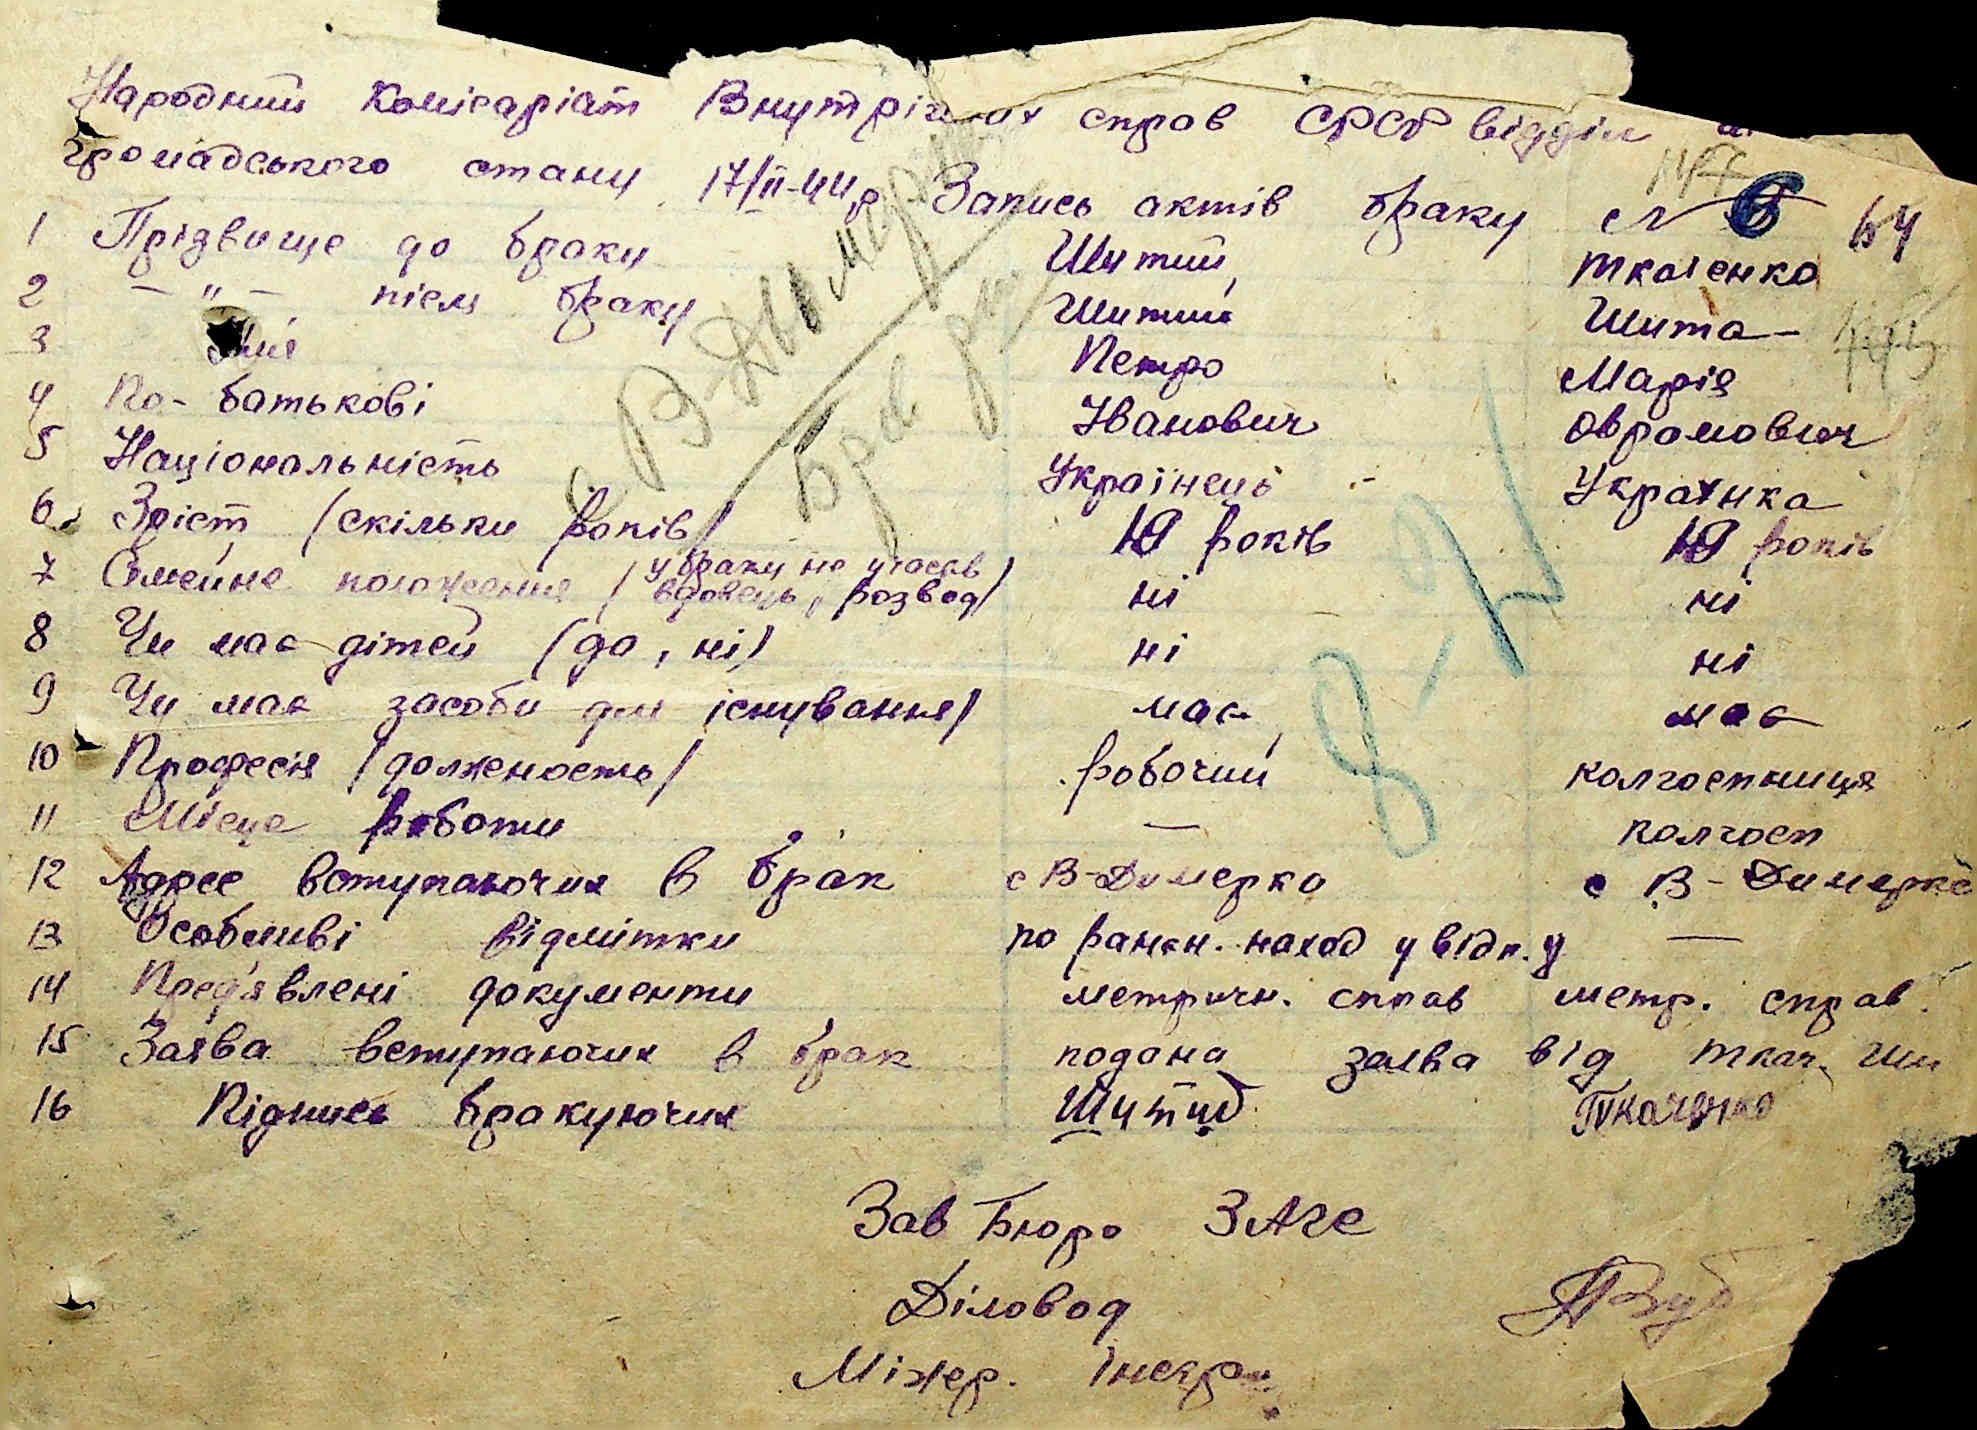 Народний Комісаріат Внутрішніх справ СРСР відділ
громадського стану 17/II-44 р Запись актів браку № 6 64
1 Прізвище до браку Шитий Ткаченко
2 — " — післи браку Шитий Шита
3 Имя Петро Марія
4 По-батькові Іванович Оврамович
5 Національність Українець Українка
6 Зріст (скільки років) 19 років 19 років
7 Семейне положення (у браку не числ вдовець, розвод) ні ні
8 Чи має дітей (да, ні) ні ні
9 Чи має засоби для існування) має має
10 Професія (должность) робочий колгоспниця
11 Місце роботи — колгосп
12 Адрес вступаючих в брак с В-Димерка с В-Димерка
13 Особливі відмітки по ранен. наход у відп. —
14 Пред'явлені документи метричн. справ метр. справ.
15 Заява вступаючих в брак подана заява від Ткач. Ши
16 Підпись бракуючих Шитий Ткаченко
В-Димерка
Бров р
8-
Зав Бюро ЗАГС
Діловод